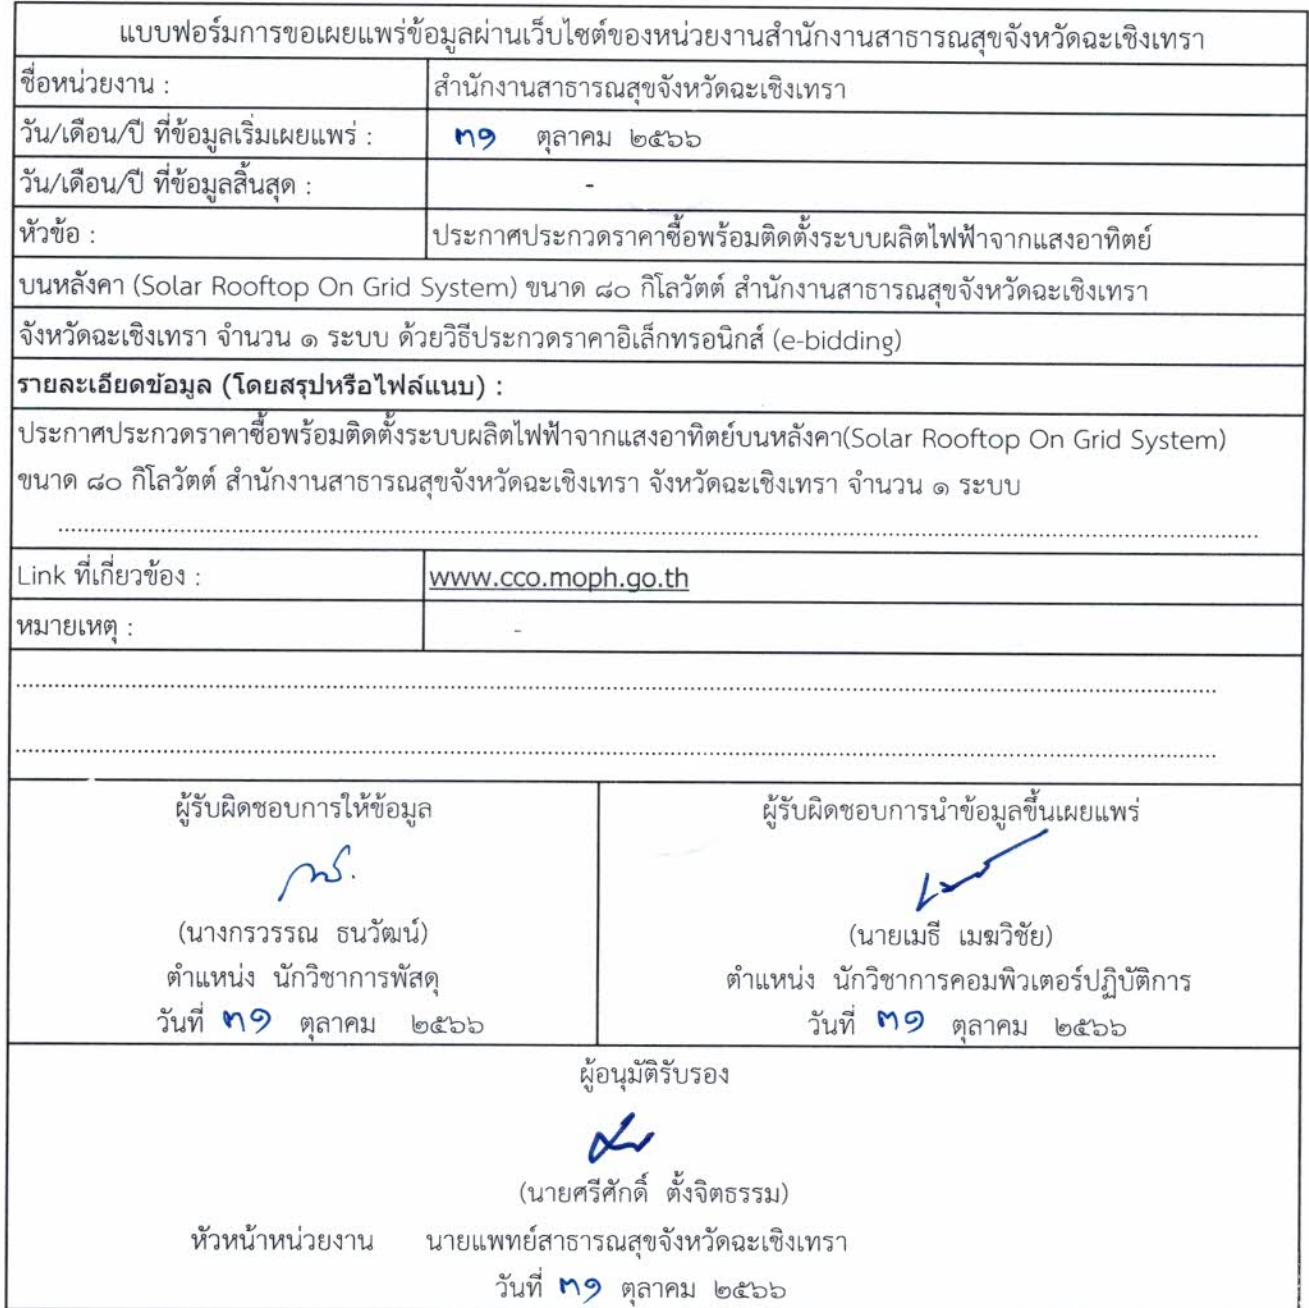 แบบฟอร์มการขอเผยแพร่ข้อมูลผ่านเว็บไซต์ของหน่วยงานสำนักงานสาธารณสุขจังหวัดฉะเชิงเทรา
ชื่อหน่วยงาน : สำนักงานสาธารณสุขจังหวัดฉะเชิงเทรา
วัน/เดือน/ปี ที่ข้อมูลเริ่มเผยแพร่ : ๓๑ ตุลาคม ๒๕๖๖
วัน/เดือน/ปี ที่ข้อมูลสิ้นสุด : -
หัวข้อ : ประกาศประกวดราคาซื้อพร้อมติดตั้งระบบผลิตไฟฟ้าจากแสงอาทิตย์
บนหลังคา (Solar Rooftop On Grid System) ขนาด ๘๐ กิโลวัตต์ สำนักงานสาธารณสุขจังหวัดฉะเชิงเทรา
จังหวัดฉะเชิงเทรา จำนวน ๑ ระบบ ด้วยวิธีประกวดราคาอิเล็กทรอนิกส์ (e-bidding)
รายละเอียดข้อมูล (โดยสรุปหรือไฟล์แนบ) :
ประกาศประกวดราคาซื้อพร้อมติดตั้งระบบผลิตไฟฟ้าจากแสงอาทิตย์บนหลังคา(Solar Rooftop On Grid System)
ขนาด ๘๐ กิโลวัตต์ สำนักงานสาธารณสุขจังหวัดฉะเชิงเทรา จังหวัดฉะเชิงเทรา จำนวน ๑ ระบบ
Link ที่เกี่ยวข้อง : www.cco.moph.go.th
หมายเหตุ : -
ผู้รับผิดชอบการให้ข้อมูล
(นางกรวรรณ ธนวัฒน์)
ตำแหน่ง นักวิชาการพัสดุ
วันที่ ๓๑ ตุลาคม ๒๕๖๖
ผู้รับผิดชอบการนำข้อมูลขึ้นเผยแพร่
(นายเมธี เมฆวิชัย)
ตำแหน่ง นักวิชาการคอมพิวเตอร์ปฏิบัติการ
วันที่ ๓๑ ตุลาคม ๒๕๖๖
ผู้อนุมัติรับรอง
(นายศรีศักดิ์ ตั้งจิตธรรม)
หัวหน้าหน่วยงาน นายแพทย์สาธารณสุขจังหวัดฉะเชิงเทรา
วันที่ ๓๑ ตุลาคม ๒๕๖๖